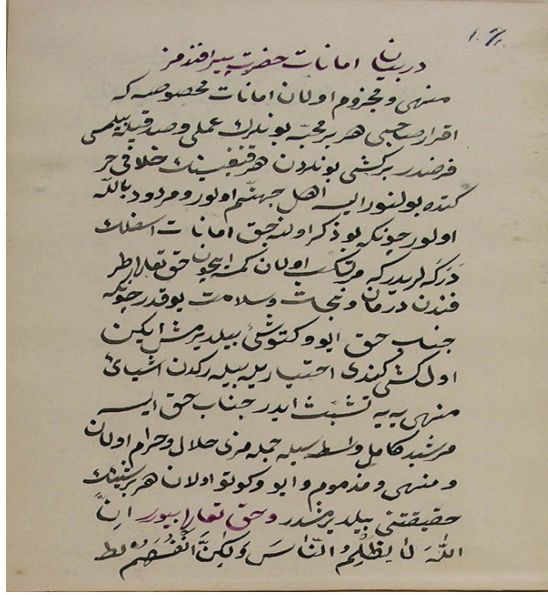 در بيان امانات حضرت پير افندمز
منهی و مجزوم اولان امانات مخصوصه كه
اقرار صاحبی هر بر محبّه بونلرك عملی و صدقيله بيلمسی
فرضدر بر كشی بونلردن هر قنغيسنك خلافی حر
كتده بولنور ايسه اهل جهنّم اولور و مردود بالله
اولور چونكه بو ذكر اولنه جق امانات اسفلك
دركه لريدر كه مرتكب اولان كمسه ايچون حق تعالی طر
فندن درمان و نجات و سلامت يوقدر چونكه
جناب حق ايو و كتو شئ بيلديرمش ايكن
اول كشی كندی اختياريله بيله رك اشيائ
منهی يه تشبّث ايدر جناب حق ايسه
مرشد كامل واسطه سيله جمله مزی حلال و حرام اولان
و منهی و مذموم و ايو و كوتو اولان هر بر شيئك
حقيقتنی بيلديرمشدر و حق تعالی بيورر انّ
اللّٰهَ لَا يَظْلِمُ النَّاسَ وَلٰكِنَّ اَنْفُسَهُمْ يظ